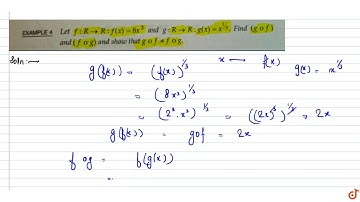 EXAMPLE 4 Let f : R → R : f(x) = 8x³ and g : R → R : g(x) = x^{1/3}. Find (g o f)
and (f o g) and show that g o f ≠ f o g.
Soln :→ g(f(x)) = (f(x))^{1/3} x → f(x) g(x) = x^{1/3}
= (8x³)^{1/3}
= (2³·x³)^{1/3} = ((2x)³)^{1/3} = 2x
g(f(x)) = gof = 2x
f og = f(g(x))
=